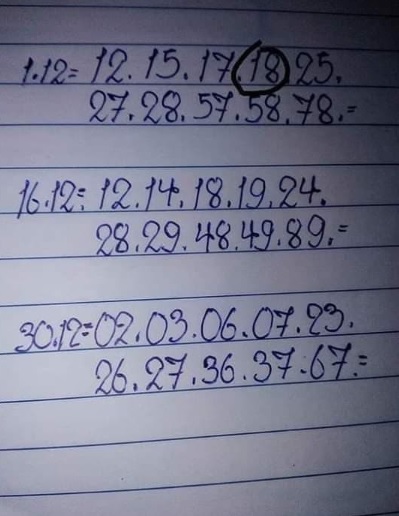 1.12= 12.15.17.18.25.
27.28.57.58.78.=
16.12= 12.14.18.19.24.
28.29.48.49.89.=
30.12=02.03.06.07.23.
26.27.36.37.67.=